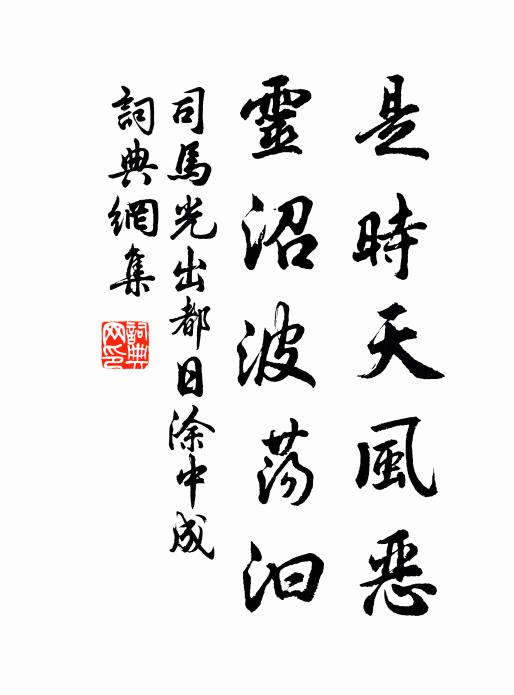 是時天風惡
靈沼波蕩汩
司馬光出都日涂中成
詞典網集
詞典網印